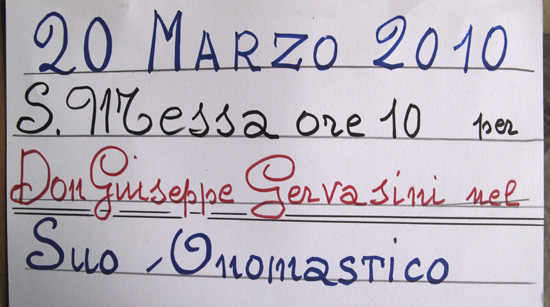 20 MARZO 2010
S. Messa ore 10 per
Don Guiseppe Gervasini nel
Suo Onomastico